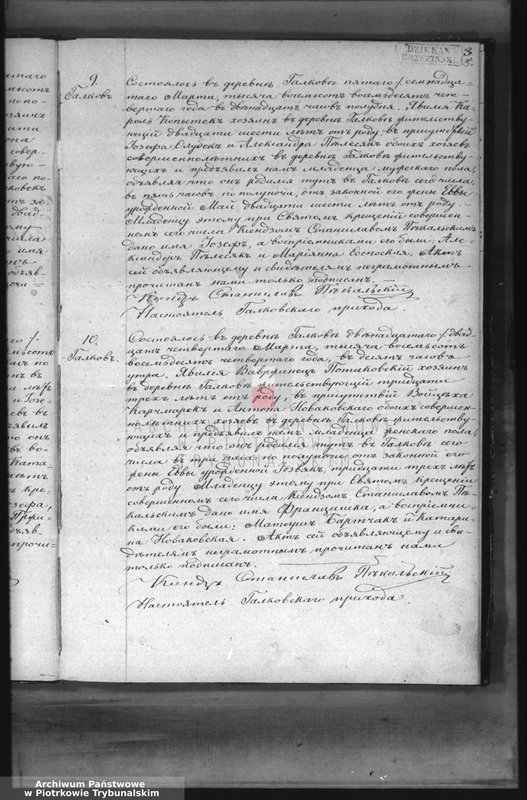 DZIEKAN
BRZEZIŃSKI
3
5.
9.
Галковъ
Состоялось въ деревнѣ Галковѣ пятаго / семнадца-
таго Марта, тысяча восемьсотъ восемьдесятъ чет-
вертаго года въ двѣнадцать часовъ полудня. Явился Ка-
роль Копытекъ хозяинъ въ деревнѣ Галковъ жительству-
ющій двадцати шести лѣтъ отъ роду въ присутствіи
Іозефа и Александра обоихъ хозяевъ
совершеннолѣтнихъ въ деревнѣ Галковъ жительству-
ющихъ и предъявилъ намъ младенца мужескаго пола
объявляя что онъ родился тутъ въ Галковѣ сего числа,
въ пять часовъ по полуночи, отъ законной его жены Еввы
урожденной Май двадцати шести лѣтъ отъ роду.
Младенцу этому при Святомъ крещеніи совершен-
номъ сего числа Ксендзомъ Станиславомъ Пѣкальскимъ
дано имя Іозефъ, а воспріемниками его были: Але-
ксандръ и Маріянна Сосноская. Актъ
сей объявляющему и свидѣтелямъ неграмотнымъ
прочитанъ нами только подписанъ.
Ксендзъ Станиславъ Пѣкальскій
Настоятель Галковскаго прихода.
10.
Галковъ.
Состоялось въ деревнѣ Галковѣ двѣнадцатаго / двад-
цать четвертаго Марта, тысяча восемьсотъ
восемьдесятъ четвертаго года, въ десять часовъ
утра. Явился Вавржинецъ Потаковскій хозяинъ
въ деревнѣ Галковъ жительствующій тридцати
трехъ лѣтъ отъ роду, въ присутствіи Войцѣха
Карчмарекъ и Антона Новаковскаго обоихъ совершен-
нолѣтнихъ хозяевъ въ деревнѣ Галковъ жительству-
ющихъ и предъявилъ намъ младенца женскаго пола,
объявляя что онъ родился тутъ въ Галковѣ сего
числа въ три часа по полуночи отъ законной его
жены Еввы урожденной Іозвякъ, тридцати трехъ лѣтъ
отъ роду. Младенцу этому при Святомъ крещеніи
совершенномъ сего числа Ксендзомъ Станиславомъ Пѣ-
кальскимъ дано имя Францишка, а воспріемни-
ками его были: Матеушъ Бартчакъ и Катари-
на Новаковская. Актъ сей объявляющему и сви-
дѣтелямъ неграмотнымъ прочитанъ нами
только подписанъ.
Ксендзъ Станиславъ Пѣкальскій
Настоятель Галковскаго прихода.
Archiwum Państwowe
w Piotrkowie Trybunalskim